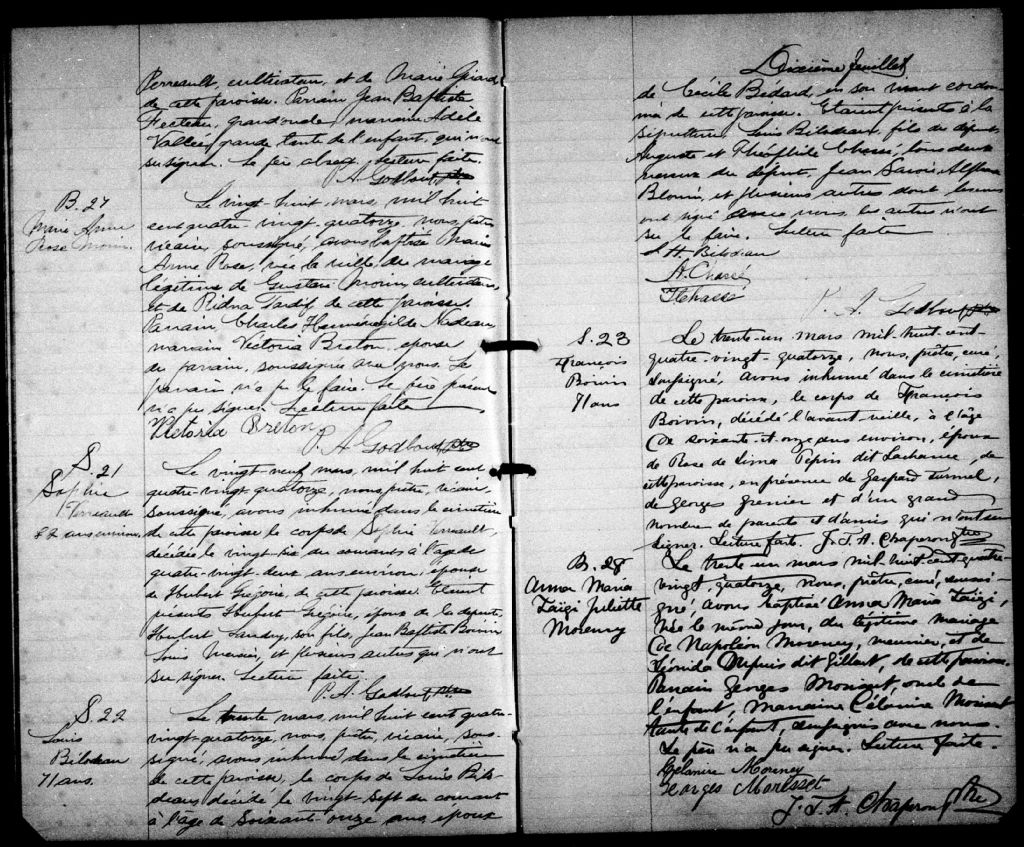 Perreault, cultivateur, et de Marie Giard
de cette paroisse. Parrain Jean Baptiste
Fecteau, grand oncle, marraine Adèle
Vallée, grande tante de l'enfant, qui n'ont
su signer. Le père absent. Lecture faite.
P. A. Godbout ptre
B. 27
Marie Anne
Rose Morin
Le vingt huit mars, mil huit
cent quatre-vingt-quatorze, nous, prêtre
vicaire, soussigné, avons baptisé Marie
Anne Rose, née la veille, du mariage
légitime de Gustave Morin, cultivateur
et de Tardif de cette paroisse.
Parrain Charles Herménégilde Nadeau
marraine Victoria Breton, épouse
du parrain, soussignée avec nous. Le
parrain n'a pu le faire. Le père présent
n'a pu signer. Lecture faite
Victoria Breton
P. A. Godbout ptre
S. 21
Sophie
Perreault
82 ans environ
Le vingt neuf mars, mil huit cent
quatre-vingt quatorze, nous, prêtre, vicaire,
soussigné, avons inhumé dans le cimetière
de cette paroisse le corps de Sophie Perreault,
décédée le vingt-six du courant à l'âge de
quatre-vingt-deux ans environ, épouse
de Hubert Grégoire, de cette paroisse. Etaient
présents Hubert Grégoire, époux de la défunte,
Hubert, son fils, Jean Baptiste Boivin
Louis Mercier, et plusieurs autres qui n'ont
su signer. Lecture faite
P. A. Godbout ptre
S. 22
Louis
Bilodeau
71 ans.
Le trente mars, mil huit cent quatre-
vingt-quatorze, nous, prêtre, vicaire, sous-
signé, avons inhumé dans le cimetière
de cette paroisse, le corps de Louis Bilo-
deau décédé le vingt-sept du courant
à l'âge de soixante-onze ans, époux
Dixième feuillet
de Cécile Bédard, en son vivant cordon-
nier de cette paroisse. Etaient présents à la
sépulture, Louis Bilodeau, fils du défunt,
Auguste et Théophile Chassé, tous deux
neveux du défunt, Jean Savoie, Alphonse
Blouin, et plusieurs autres dont les uns
ont signé avec nous, les autres n'ont
su le faire. Lecture faite
L. H. Bilodeau
A. Chassé
T Chassé
P. A. Godbout ptre
S. 23
François
Boivin
71 ans
Le trente-un mars mil-huit-cent-
quatre-vingt-quatorze, nous, prêtre, curé,
soussigné, avons inhumé dans le cimetière
de cette paroisse, le corps de François
Boivin, décédé l'avant-veille, à l'âge
de soixante-et-onze ans environ, époux
de Rose de Lima Pépin dit Lachance, de
cette paroisse, en présence de Gaspard Turmel,
de Georges Grenier et d'un grand
nombre de parents et d'amis qui n'ont su
signer. Lecture faite. J. T. A. Chaperon Ptre
B. 28
Anna Maria
Zaïgi Juliette
Morency
Le trente un mars mil-huit-cent quatre-
vingt, quatorze, nous, prêtre, curé, soussi-
gné, avons baptisé Anna Maria Zaïgi,
née le même jour, du légitime mariage
de Napoléon Morency, meunier, et de
Dupuis dit Gilbert, de cette paroisse.
Parrain Georges Morisset, oncle de
l'enfant, Marraine Célanire Morisset
tante de l'enfant, soussignés avec nous.
Le père n'a pu signer. Lecture faite.
Célanire Morency
Georges Morisset
J. T. A. Chaperon Ptre